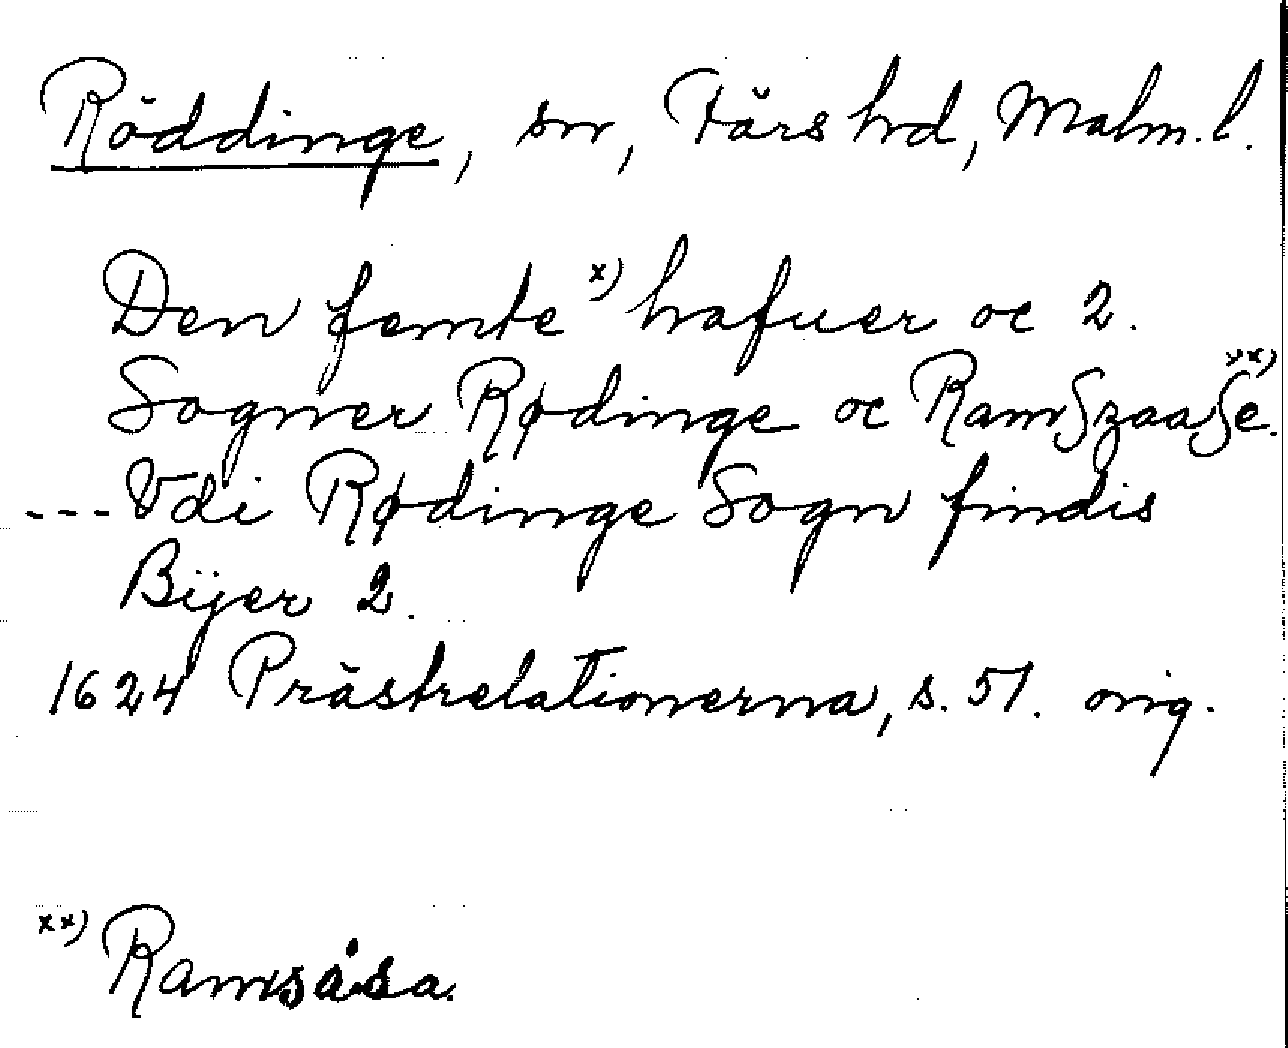 Röddinge, sn, Färs hd, Malm. l.
Den femte x) hafuer oc 2.
Sogner Rødinge oc Ramszaase. xx)
--- Vdi Rødinge Sogn findis
Bÿer 2.
1624 Prästrelationerna, s. 51. orig.
xx) Ramsåsa.